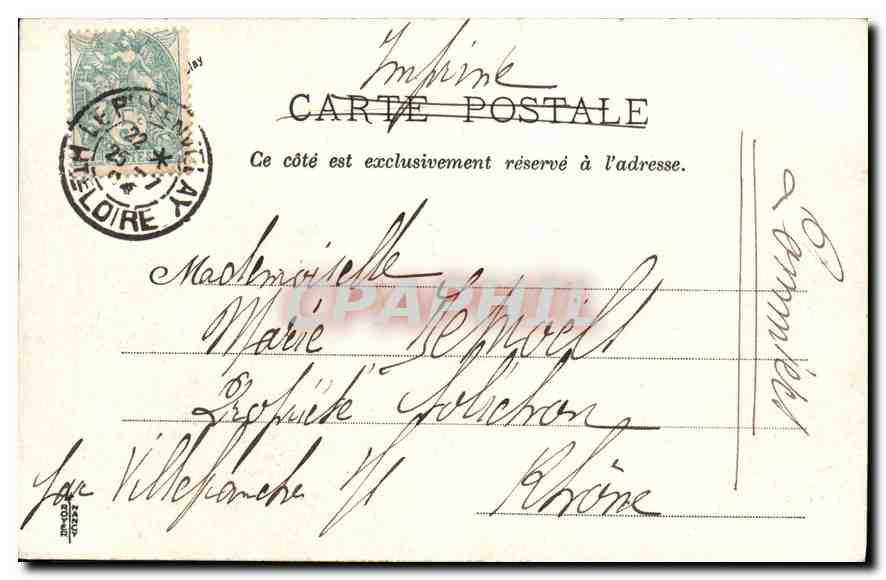 Imprimé
CARTE POSTALE
Ce côté est exclusivement réservé à l'adresse.
LE PUY-EN-VELAY
22
25 - 7
04
HTE LOIRE
Mademoiselle
Marie
Propriété Solichon
par Villefranche s/s Rhône
CPAPHIL
ROYER
NANCY